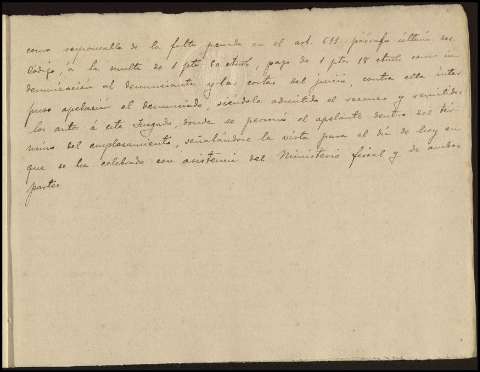 como responsable de la falta penada en el art. 611 párrafo último del
Código, á la multa de 1 pta 50 ctmos, pago de 1 pta 18 ctmos como in
demnización al denunciante y las costas del juicio, contra ella inter
puso apelación el denunciado, siéndole admitido el recurso y remitidos
los autos á este Juzgado, donde se personó el apelante dentro del tér
mino del emplazamiento, señalándose la vista para el día de hoy en
que se ha celebrado con asistencia del Ministerio fiscal y de ambas
partes